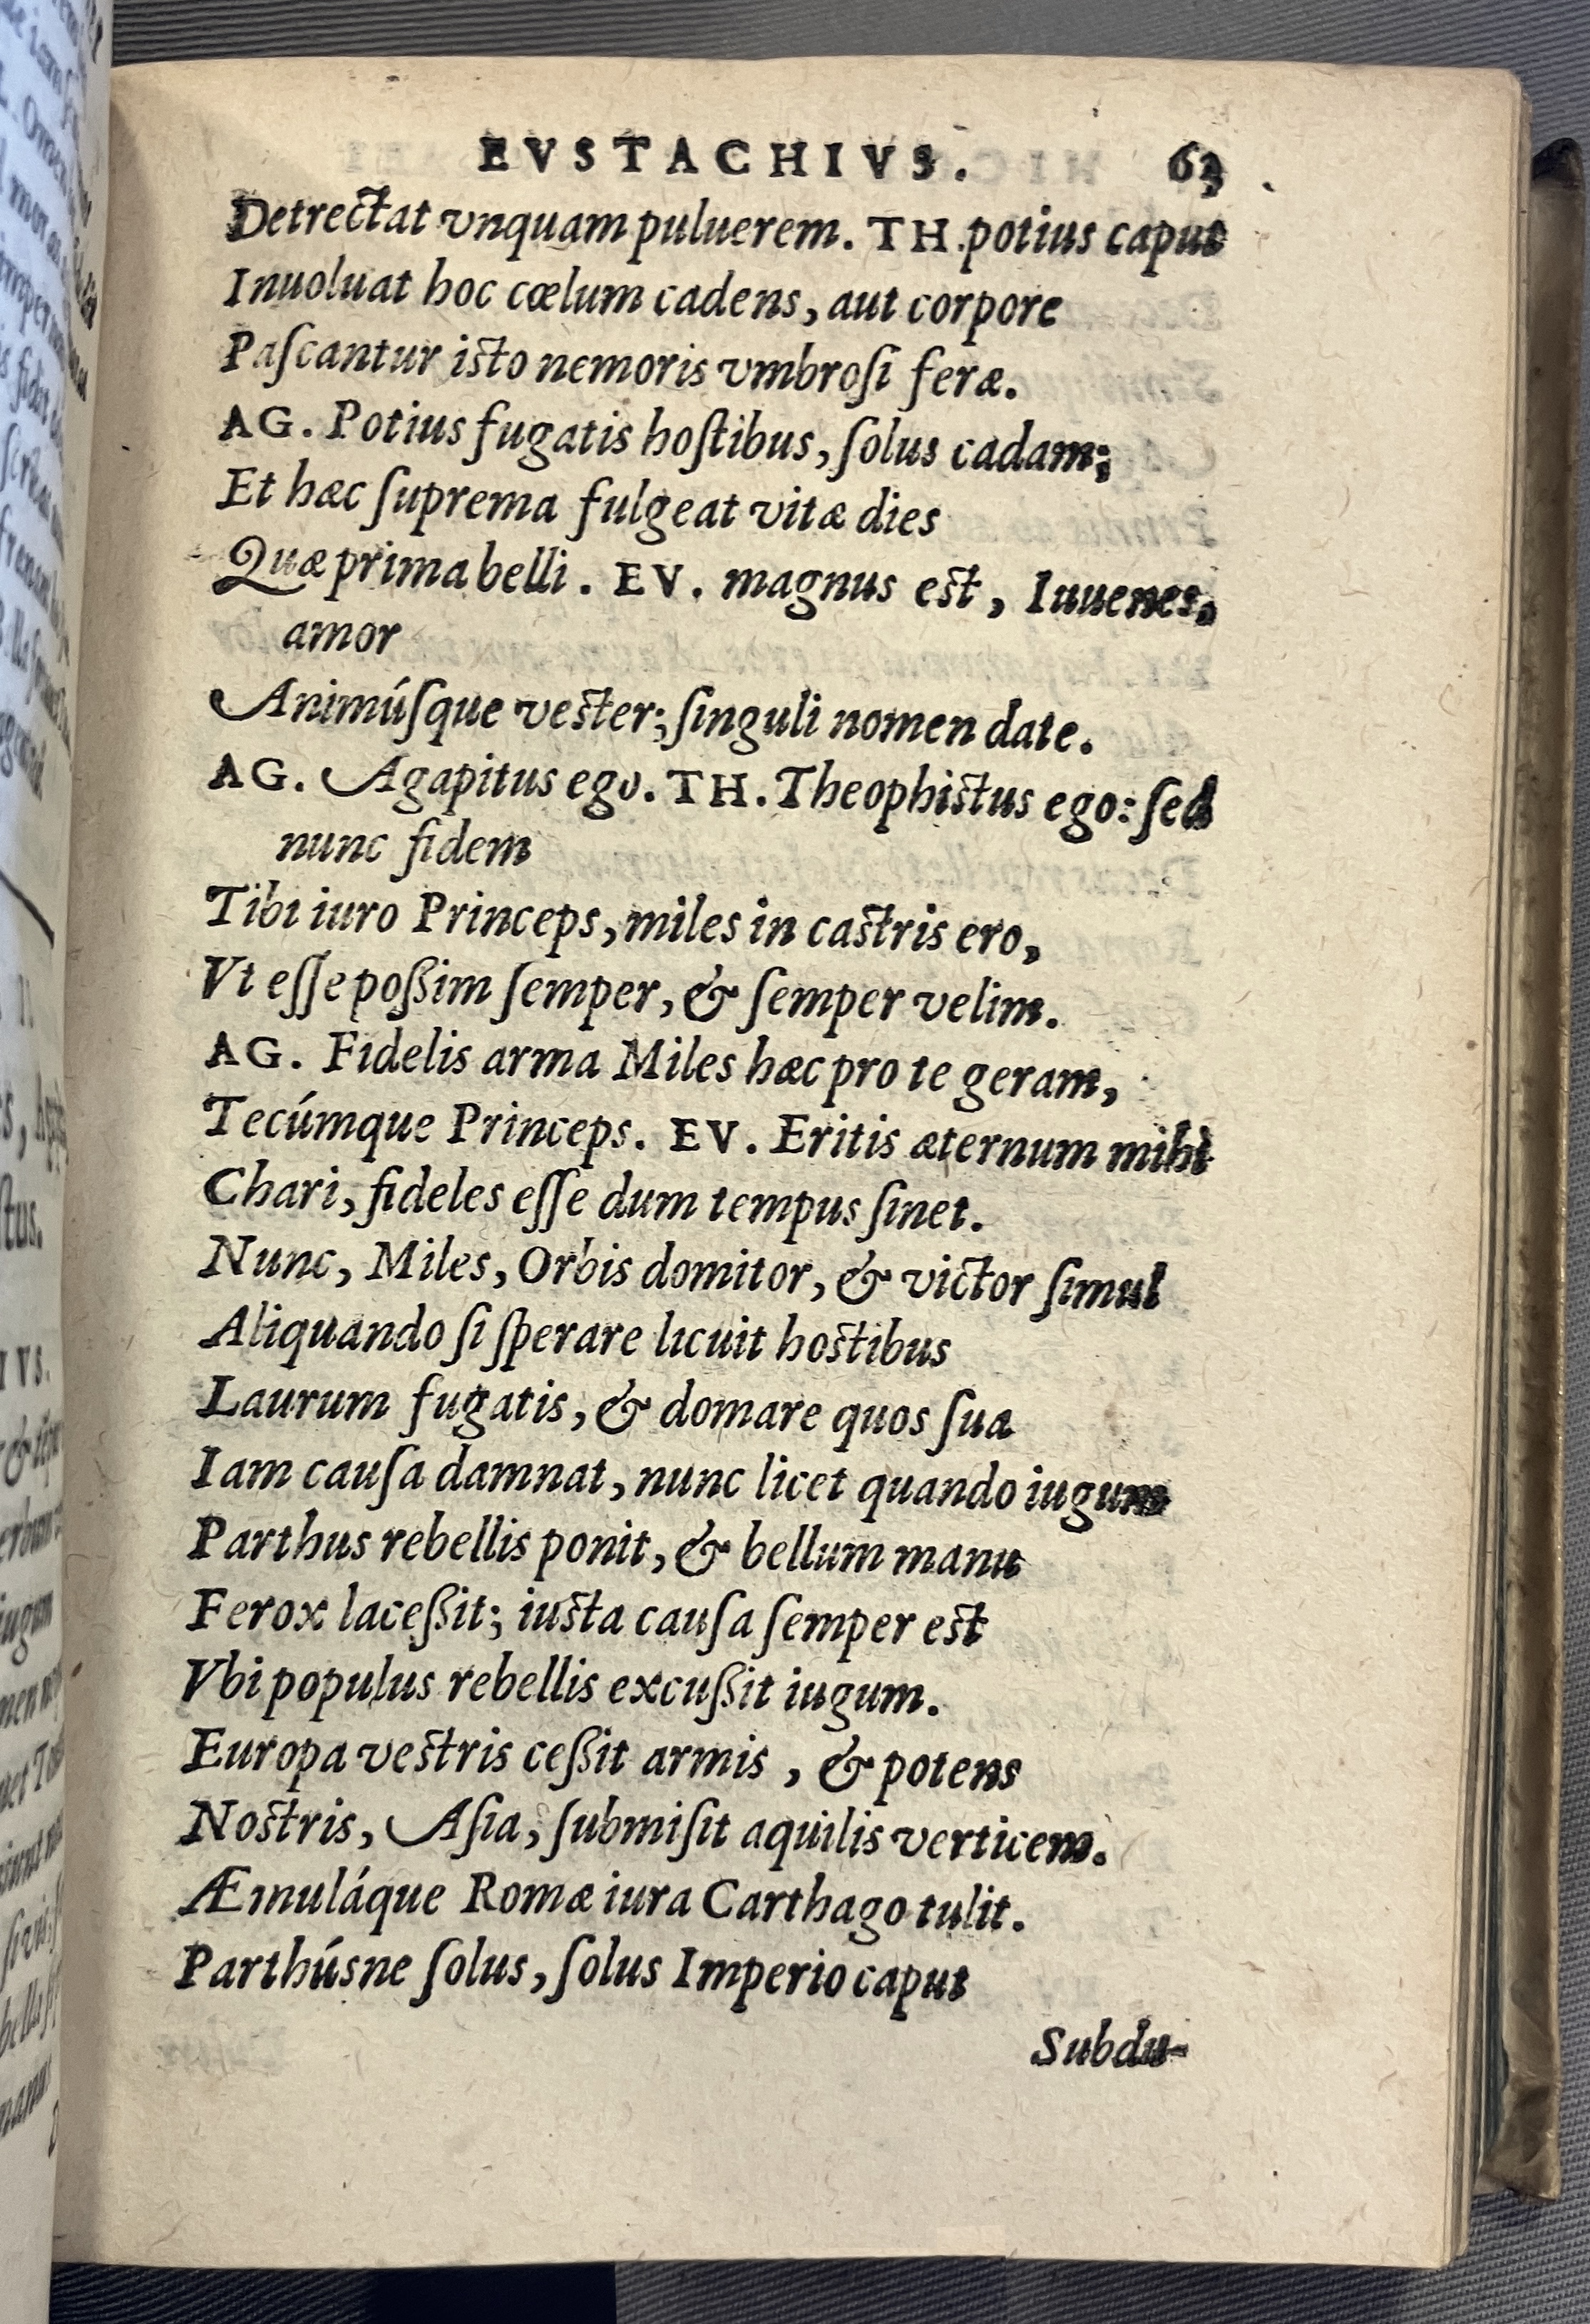 EVSTACHIVS. 63
Detrectat vnquam puluerem. TH. potius caput
Inuoluat hoc cœlum cadens, aut corpore
Paſcantur iſto nemoris vmbroſi feræ.
AG. Potius fugatis hoſtibus, ſolus cadam;
Et hæc ſuprema fulgeat vitæ dies
Quæ prima belli. EV. magnus eſt, Iuuenes,
amor
Animúſque veſter; ſinguli nomen date.
AG. Agapitus ego. TH. Theophiſtus ego: ſed
nunc fidem
Tibi iuro Princeps, miles in caſtris ero,
Vt eſſe poßim ſemper, & ſemper velim.
AG. Fidelis arma Miles hæc pro te geram,
Tecúmque Princeps. EV. Eritis æternum mihi
Chari, fideles eſſe dum tempus ſinet.
Nunc, Miles, Orbis domitor, & victor ſimul
Aliquando ſi ſperare licuit hoſtibus
Laurum fugatis, & domare quos ſua
Iam cauſa damnat, nunc licet quando iugum
Parthus rebellis ponit, & bellum manu
Ferox laceßit; iuſta cauſa ſemper eſt
Vbi populus rebellis excußit iugum.
Europa veſtris ceßit armis, & potens
Noſtris, Aſia, ſubmiſit aquilis verticem.
Æmuláque Romæ iura Carthago tulit.
Parthúsne ſolus, ſolus Imperio caput
Subdu-